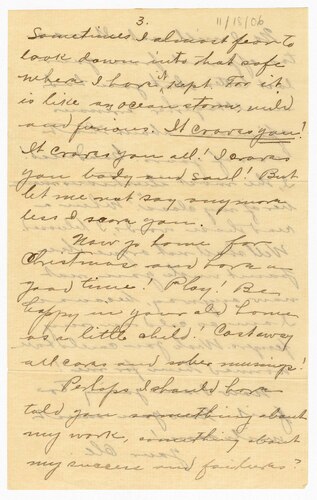 3.
11/18/06
Sometimes I almost fear to
look down into that safe
where I have it kept. For it
is like an ocean storm, wild
and furious. It craves you!
It craves you all! It craves
you body and soul! But
let me not say any more
less I scare you.
Now go home for
Christmas and have a
good time! Play! Be
happy in your old home
as a little child! Castaway
all cares and sober musings!
Perhaps I should have
told you something about
my work, something about
my success and failures?